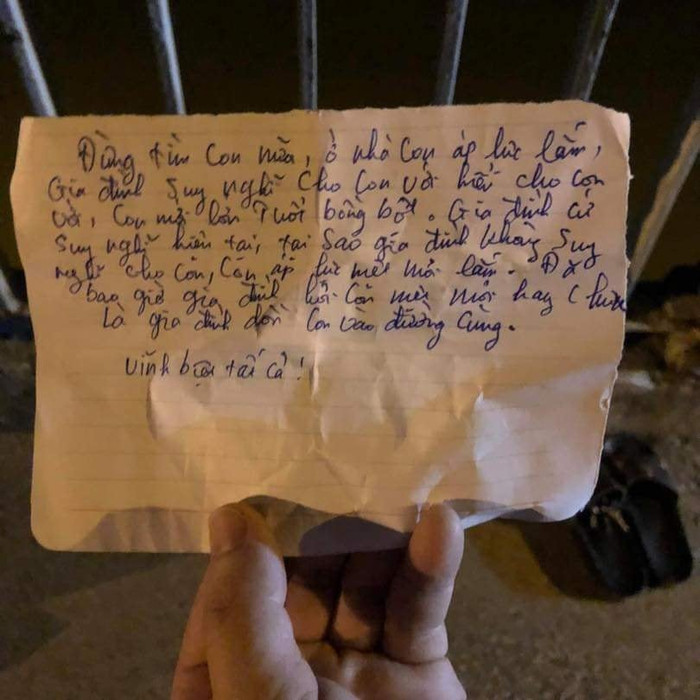 Đừng tìm Con nữa, ở nhà Con áp lực lắm,
Gia đình Suy nghĩ Cho Con với hiểu cho con
với, Con mới lớn Tuổi bồng bột. Gia đình cứ
Suy nghĩ hiện tại, tại Sao gia đình không Suy
nghĩ cho Con, Con áp lực mệt mỏi lắm. Đã
bao giờ gia đình hỏi Con mệt mỏi hay Chưa
Là gia đình dồn Con vào đường Cùng.
Vĩnh biệt tất cả!